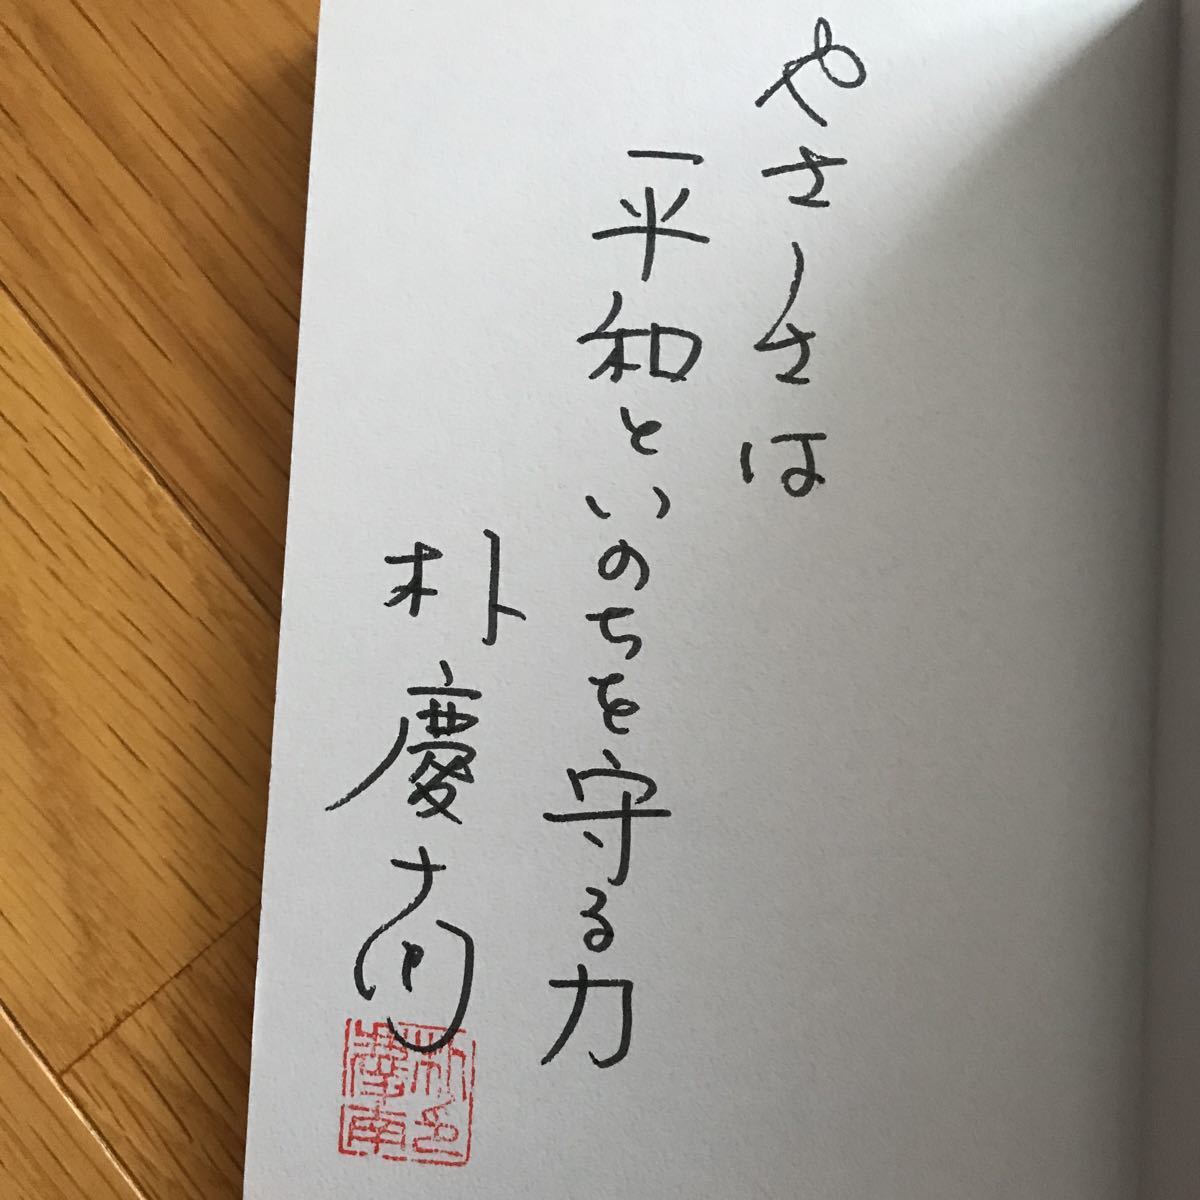 やさしさは
平和といのちを守る力
朴慶南